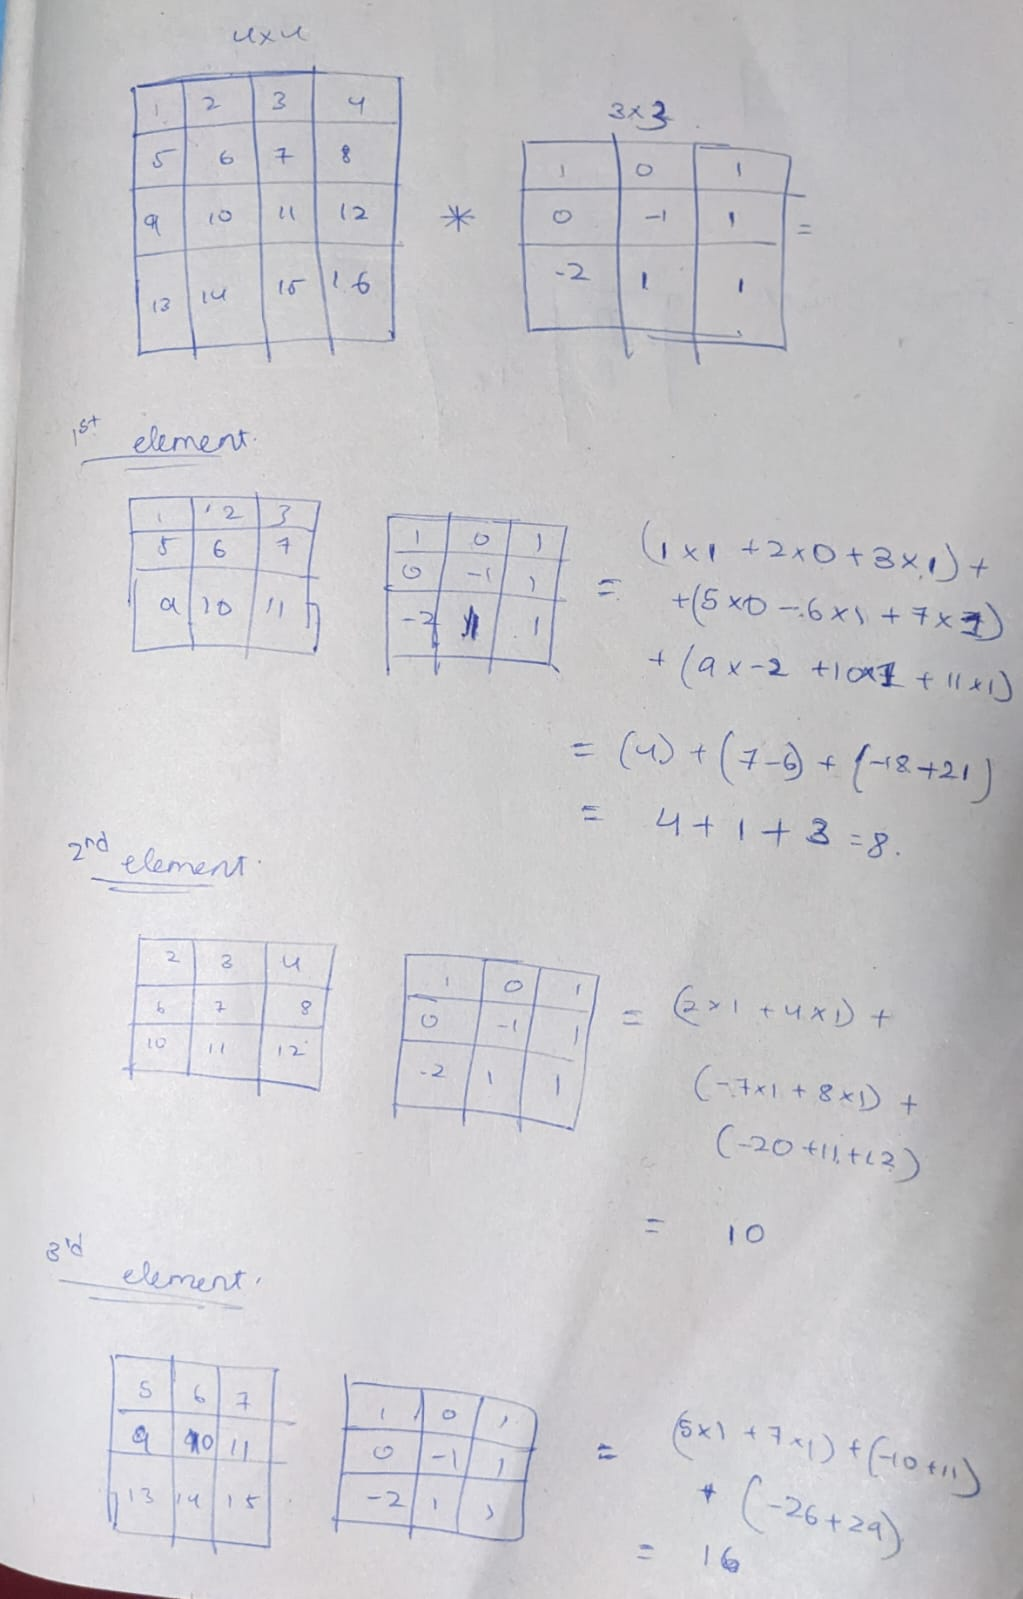 4x4
3x3
1 2 3 4
5 6 7 8
9 10 11 12
13 14 15 16
*
1 0 1
0 -1 1
-2 1 1
=
1st element.
1 2 3
5 6 7
9 10 11
1 0 1
0 -1 1
-2 1 1
= (1x1 +2x0+3x1)+
+(5x0 -6x1 +7x1)
+(9x-2 +10x1 +11x1)
= (4)+(7-6)+(-18+21)
= 4+1+3=8.
2nd element.
2 3 4
6 7 8
10 11 12
1 0 1
0 -1 1
-2 1 1
= (2x1 +4x1)+
(-7x1+8x1)+
(-20+11+12)
= 10
3rd element.
5 6 7
9 10 11
13 14 15
1 0 1
0 -1 1
-2 1 1
= (5x1 +7x1)+(-10+11)
+(-26+29)
= 16